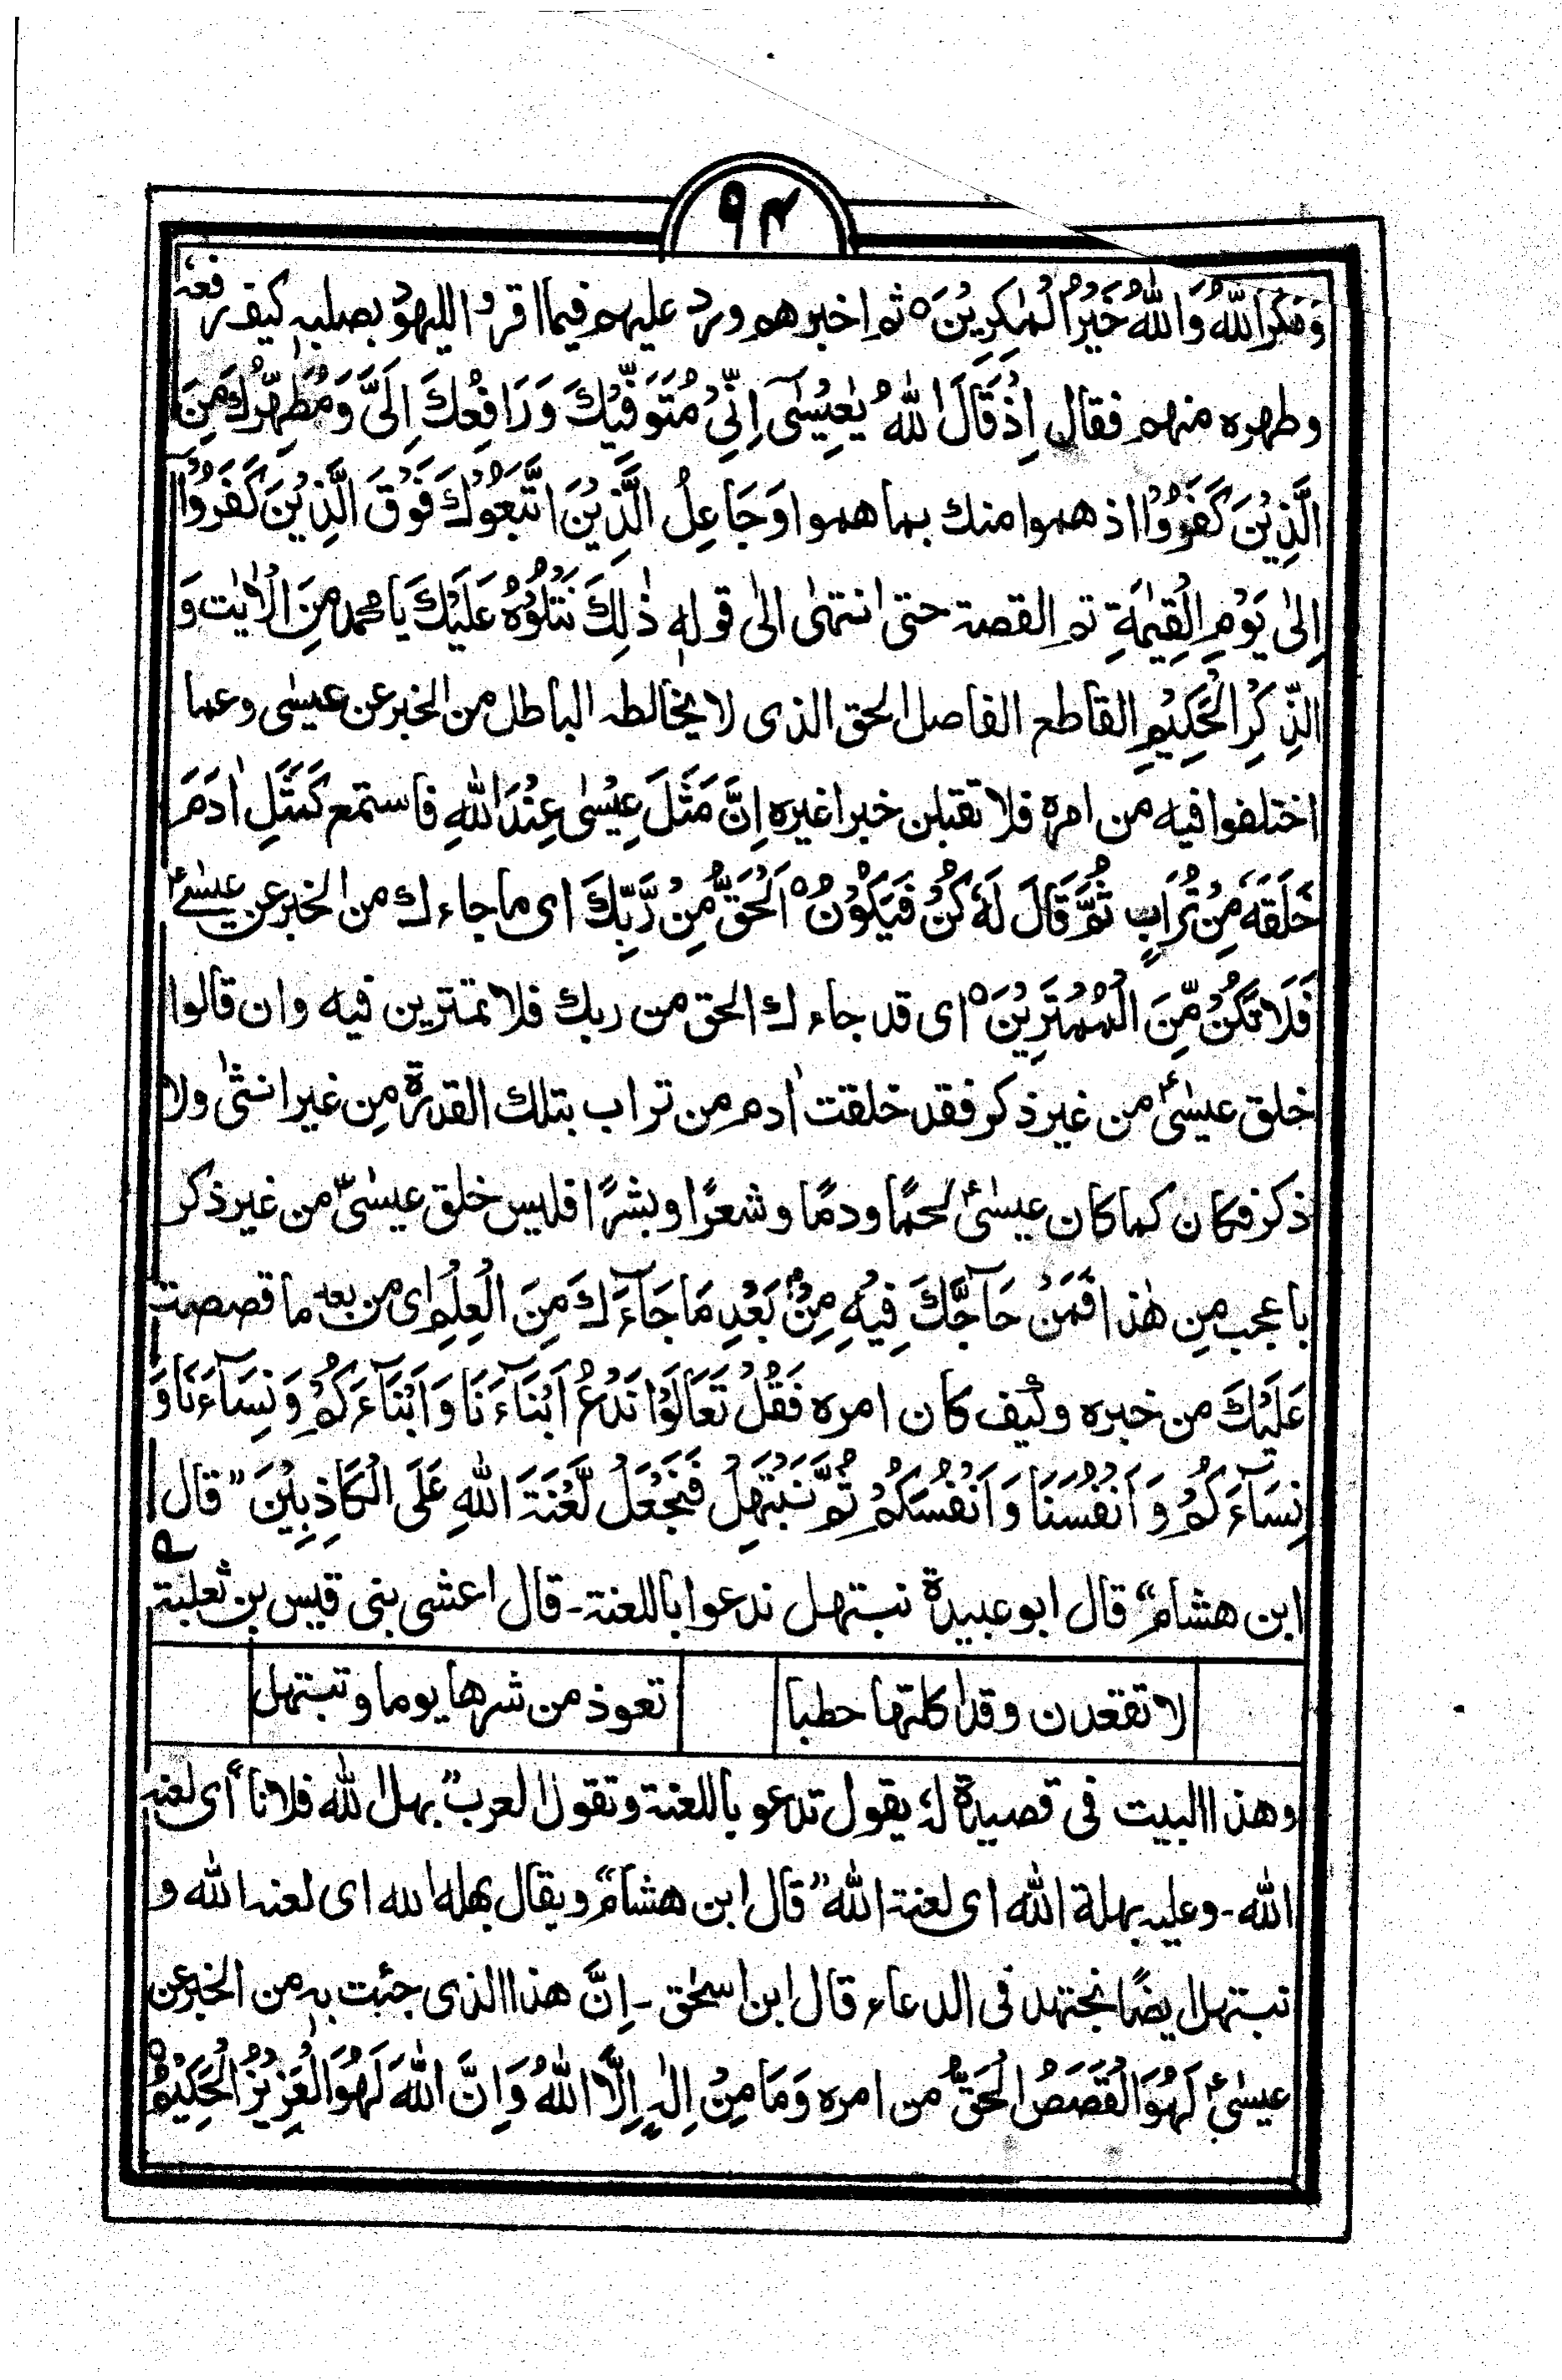 ۹۴
وَمَكَرَ اللّٰهُ وَاللّٰهُ خَيْرُ الْمٰكِرِيْنَ ثم اخبرهم ورد عليهم فيما اقروا لليهود بصلبہٖ كيف رفعہ
وطهره منهم فقال اِذْ قَالَ اللّٰهُ يٰعِيْسٰى اِنِّيْ مُتَوَفِّيْكَ وَرَافِعُكَ اِلَىَّ وَمُطَهِّرُكَ مِنَ
الَّذِيْنَ كَفَرُوْا اذ هموا منك بما هموا وَجَاعِلُ الَّذِيْنَ اتَّبَعُوْكَ فَوْقَ الَّذِيْنَ كَفَرُوْا
اِلٰى يَوْمِ الْقِيٰمَةِ ثم القصة حتى انتهٰى الٰى قولهٖ ذٰلِكَ نَتْلُوْهُ عَلَيْكَ يا محمد مِنَ الْاٰيٰت وَ
الذِّكْرِ الْحَكِيْمِ القاطع الفاصل الحق الذى لا يخالطه الباطل من الخبر عن عيسٰى وعما
اختلفوا فيه من امره فلا تقبلن خبرا غيره اِنَّ مَثَلَ عِيْسٰى عِنْدَ اللّٰهِ فاستمع كَمَثَلِ اٰدَمَ
خَلَقَهٗ مِنْ تُرَابٍ ثُمَّ قَالَ لَهٗ كُنْ فَيَكُوْنُ اَلْحَقُّ مِنْ رَّبِّكَ اى ما جاءك من الخبر عن عيسٰىؑ
فَلَا تَكُنْ مِّنَ الْمُمْتَرِيْنَ اى قد جاءك الحق من ربك فلا تمترين فيه وان قالوا
خلق عيسٰىؑ من غير ذكر فقد خلقت اٰدم من تراب بتلك القدرة مِن غير انثىٰ ولا
ذكر فكان كما كان عيسٰىؑ لحمًا ودمًا وشعرًا وبشرًا فليس خلق عيسٰىؑ من غير ذكر
باعجب مِن هٰذا فَمَنْ حَآجَّكَ فِيْهِ مِنْۢ بَعْدِ مَا جَآءَكَ مِنَ الْعِلْمِ اى من بعد ما قصصت
عَلَيْكَ من خبره وكيف كان امره فَقُلْ تَعَالَوْا نَدْعُ اَبْنَآءَنَا وَاَبْنَآءَكُمْ وَنِسَآءَنَا وَ
نِسَآءَكُمْ وَاَنْفُسَنَا وَاَنْفُسَكُمْ ثُمَّ نَبْتَهِلْ فَنَجْعَلْ لَّعْنَةَ اللّٰهِ عَلَى الْكَاذِبِيْنَ" قال
ابن هشام" قال ابو عبيدة نبتهل ندعوا باللعنة - قال اعشى بنى قيس بن ثعلبة
لا تقعدن وقد اكلتها حطبا تعوذ من شرها يوما وتبتهل
وهذا البيت فى قصيدة لهٗ يقول تدعو باللعنة وتقول العرب" بهل الله فلانا" أى لعنہ
الله - وعليہ بهلة الله اى لعنة الله" قال ابن هشام" ويقال بهله الله اى لعنہ الله و
نبتهل ايضًا نجتهد فى الدعاء قال ابن اسحٰق - اِنَّ هذا الذى جئت بہٖ من الخبر عن
عيسٰىؑ لَهُوَ الْقَصَصُ الْحَقُّ من امره وَمَا مِنْ اِلٰهٍ اِلَّا اللّٰهُ وَاِنَّ اللّٰهَ لَهُوَ الْعَزِيْزُ الْحَكِيْمُ